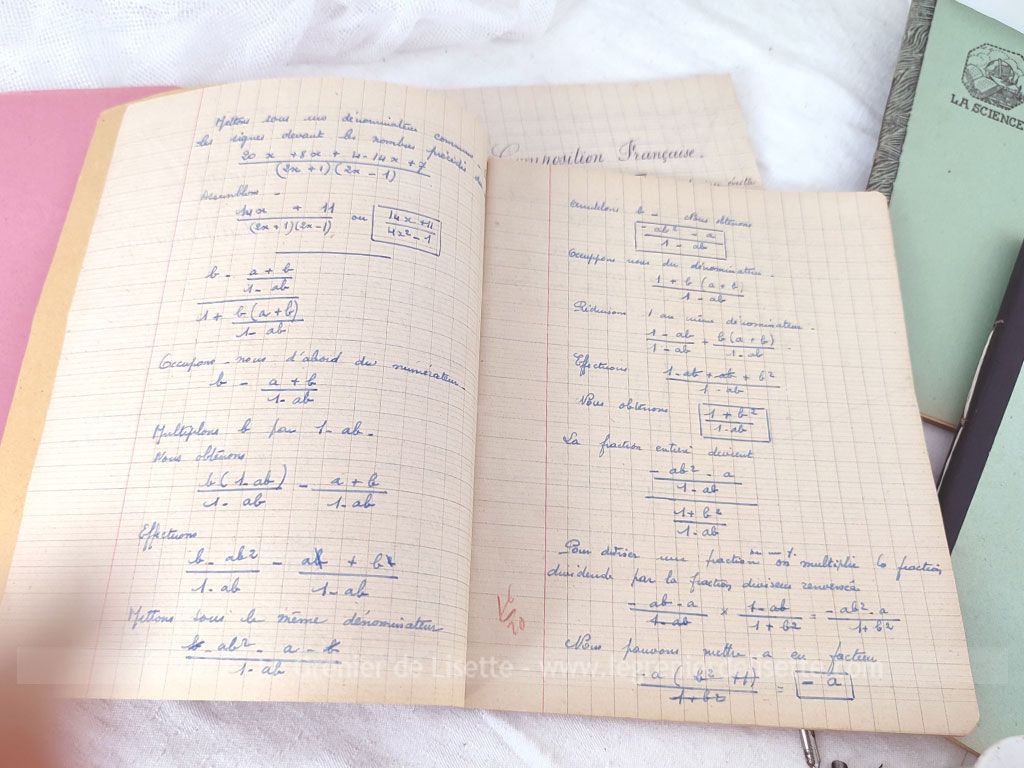 Mettons sous un dénominateur commun
les signes devant les nombres précédés du
20x + 8x + 4 - 14x + 7
(2x + 1) (2x - 1)
Assemblons -
14x + 11
(2x + 1)(2x - 1)
ou
14x + 11
4x² - 1
b - a + b
1 - ab
1 + b (a + b)
1 - ab
Occupons-nous d'abord du numérateur -
b - a + b
1 - ab
Multiplons b par 1 - ab -
Nous obtenons
b (1 - ab) - a + b
1 - ab 1 - ab
Effectuons
b - ab² - a + b
1 - ab 1 - ab
Mettons sous le même dénominateur
b - ab² - a - b
1 - ab
Composition Française.
b - Nous obtenons
- ab² - a
1 - ab
Occuppons nous du dénominateur -
1 + b (a + b)
1 - ab
Réduisons 1 au même dénominateur -
1 - ab + b (a + b)
1 - ab 1 - ab
Effectuons 1 - ab + ab + b²
1 - ab
Nous obtenons 1 + b²
1 - ab
La fraction entière devient
- ab² - a
1 - ab
1 + b²
1 - ab
Pour diviser une fraction on multiplie la fraction
dividende par la fraction diviseur renversée
- ab - a × 1 - ab = - ab² - a
1 - ab 1 + b² 1 + b²
Nous pouvons mettre - a en facteur
- a (b² + 1) = - a
1 + b²
LA SCIENCE
Grenier de Lisette - www.legrenierdelisette.com